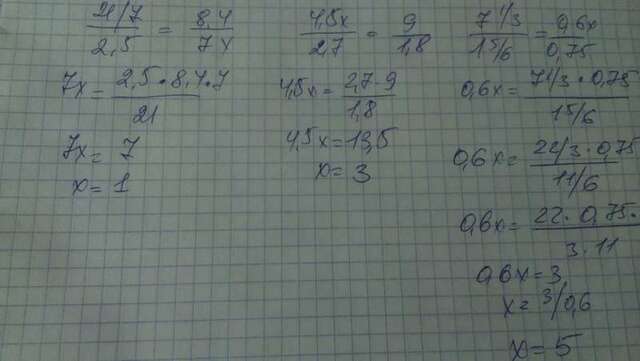 21/7 / 2,5 = 8,4 / 7x
7x = 2,5 · 8,4 · 7 / 21
7x = 7
x = 1
4,5x / 2,7 = 9 / 1,8
4,5x = 2,7 · 9 / 1,8
4,5x = 13,5
x = 3
7 1/3 / 1 5/6 = 0,6x / 0,75
0,6x = 7 1/3 · 0,75 / 1 5/6
0,6x = 22/3 · 0,75 / 11/6
0,6x = 22 · 0,75 · / 3 · 11
0,6x = 3
x = 3/0,6
x = 5